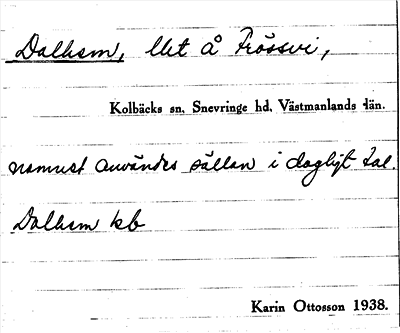 Dalhem, lht å Frössvi,
Kolbäcks sn. Snevringe hd. Västmanlands län.
namnet användes sällan i dagligt tal.
Dalhem kb
Karin Ottosson 1938.